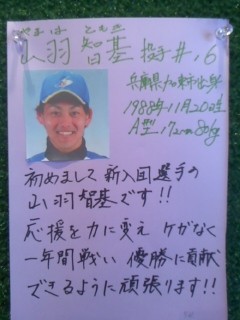 やまは ともき
山羽智基 投手 #16
兵庫県加東市出身
1988年11月20日生
A型 172cm 80kg
初めまして 新入団選手の
山羽智基です!!
応援を力に変え ケガなく
一年間戦い 優勝に貢献
できるように頑張ります!!